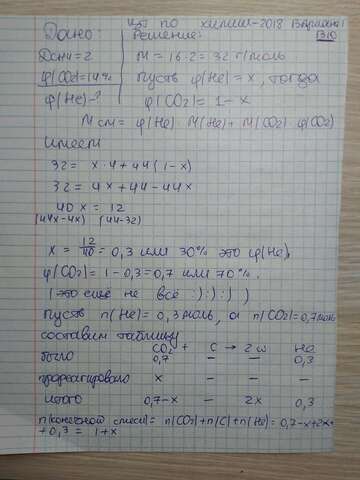 цт по химии-2018 Вариант 1
B10
Дано: Решение:
Dсм = 2 M = 16·2 = 32 г/моль
φ(CO2) = 14% пусть φ(He) = x, тогда
φ(He) - ? φ(CO2) = 1 - x
Mсм = φ(He)·M(He) + M(CO2)·φ(CO2)
Имеем
32 = x·4 + 44(1-x)
32 = 4x + 44 - 44x
40x = 12
(44x-4x) (44-32)
x = 12/40 = 0,3 или 30% это φ(He),
φ(CO2) = 1 - 0,3 = 0,7 или 70%.
(это ещё не всё :) :) :)
пусть n(He) = 0,3 моль, а n(CO2) = 0,7 моль
составим таблицу
CO2 + C → 2CO He
было 0,7 — — 0,3
прореагировало x — — —
итого 0,7-x — 2x 0,3
n(конечной смеси) = n(CO2) + n(C) + n(He) = 0,7-x+2x+
+0,3 = 1+x